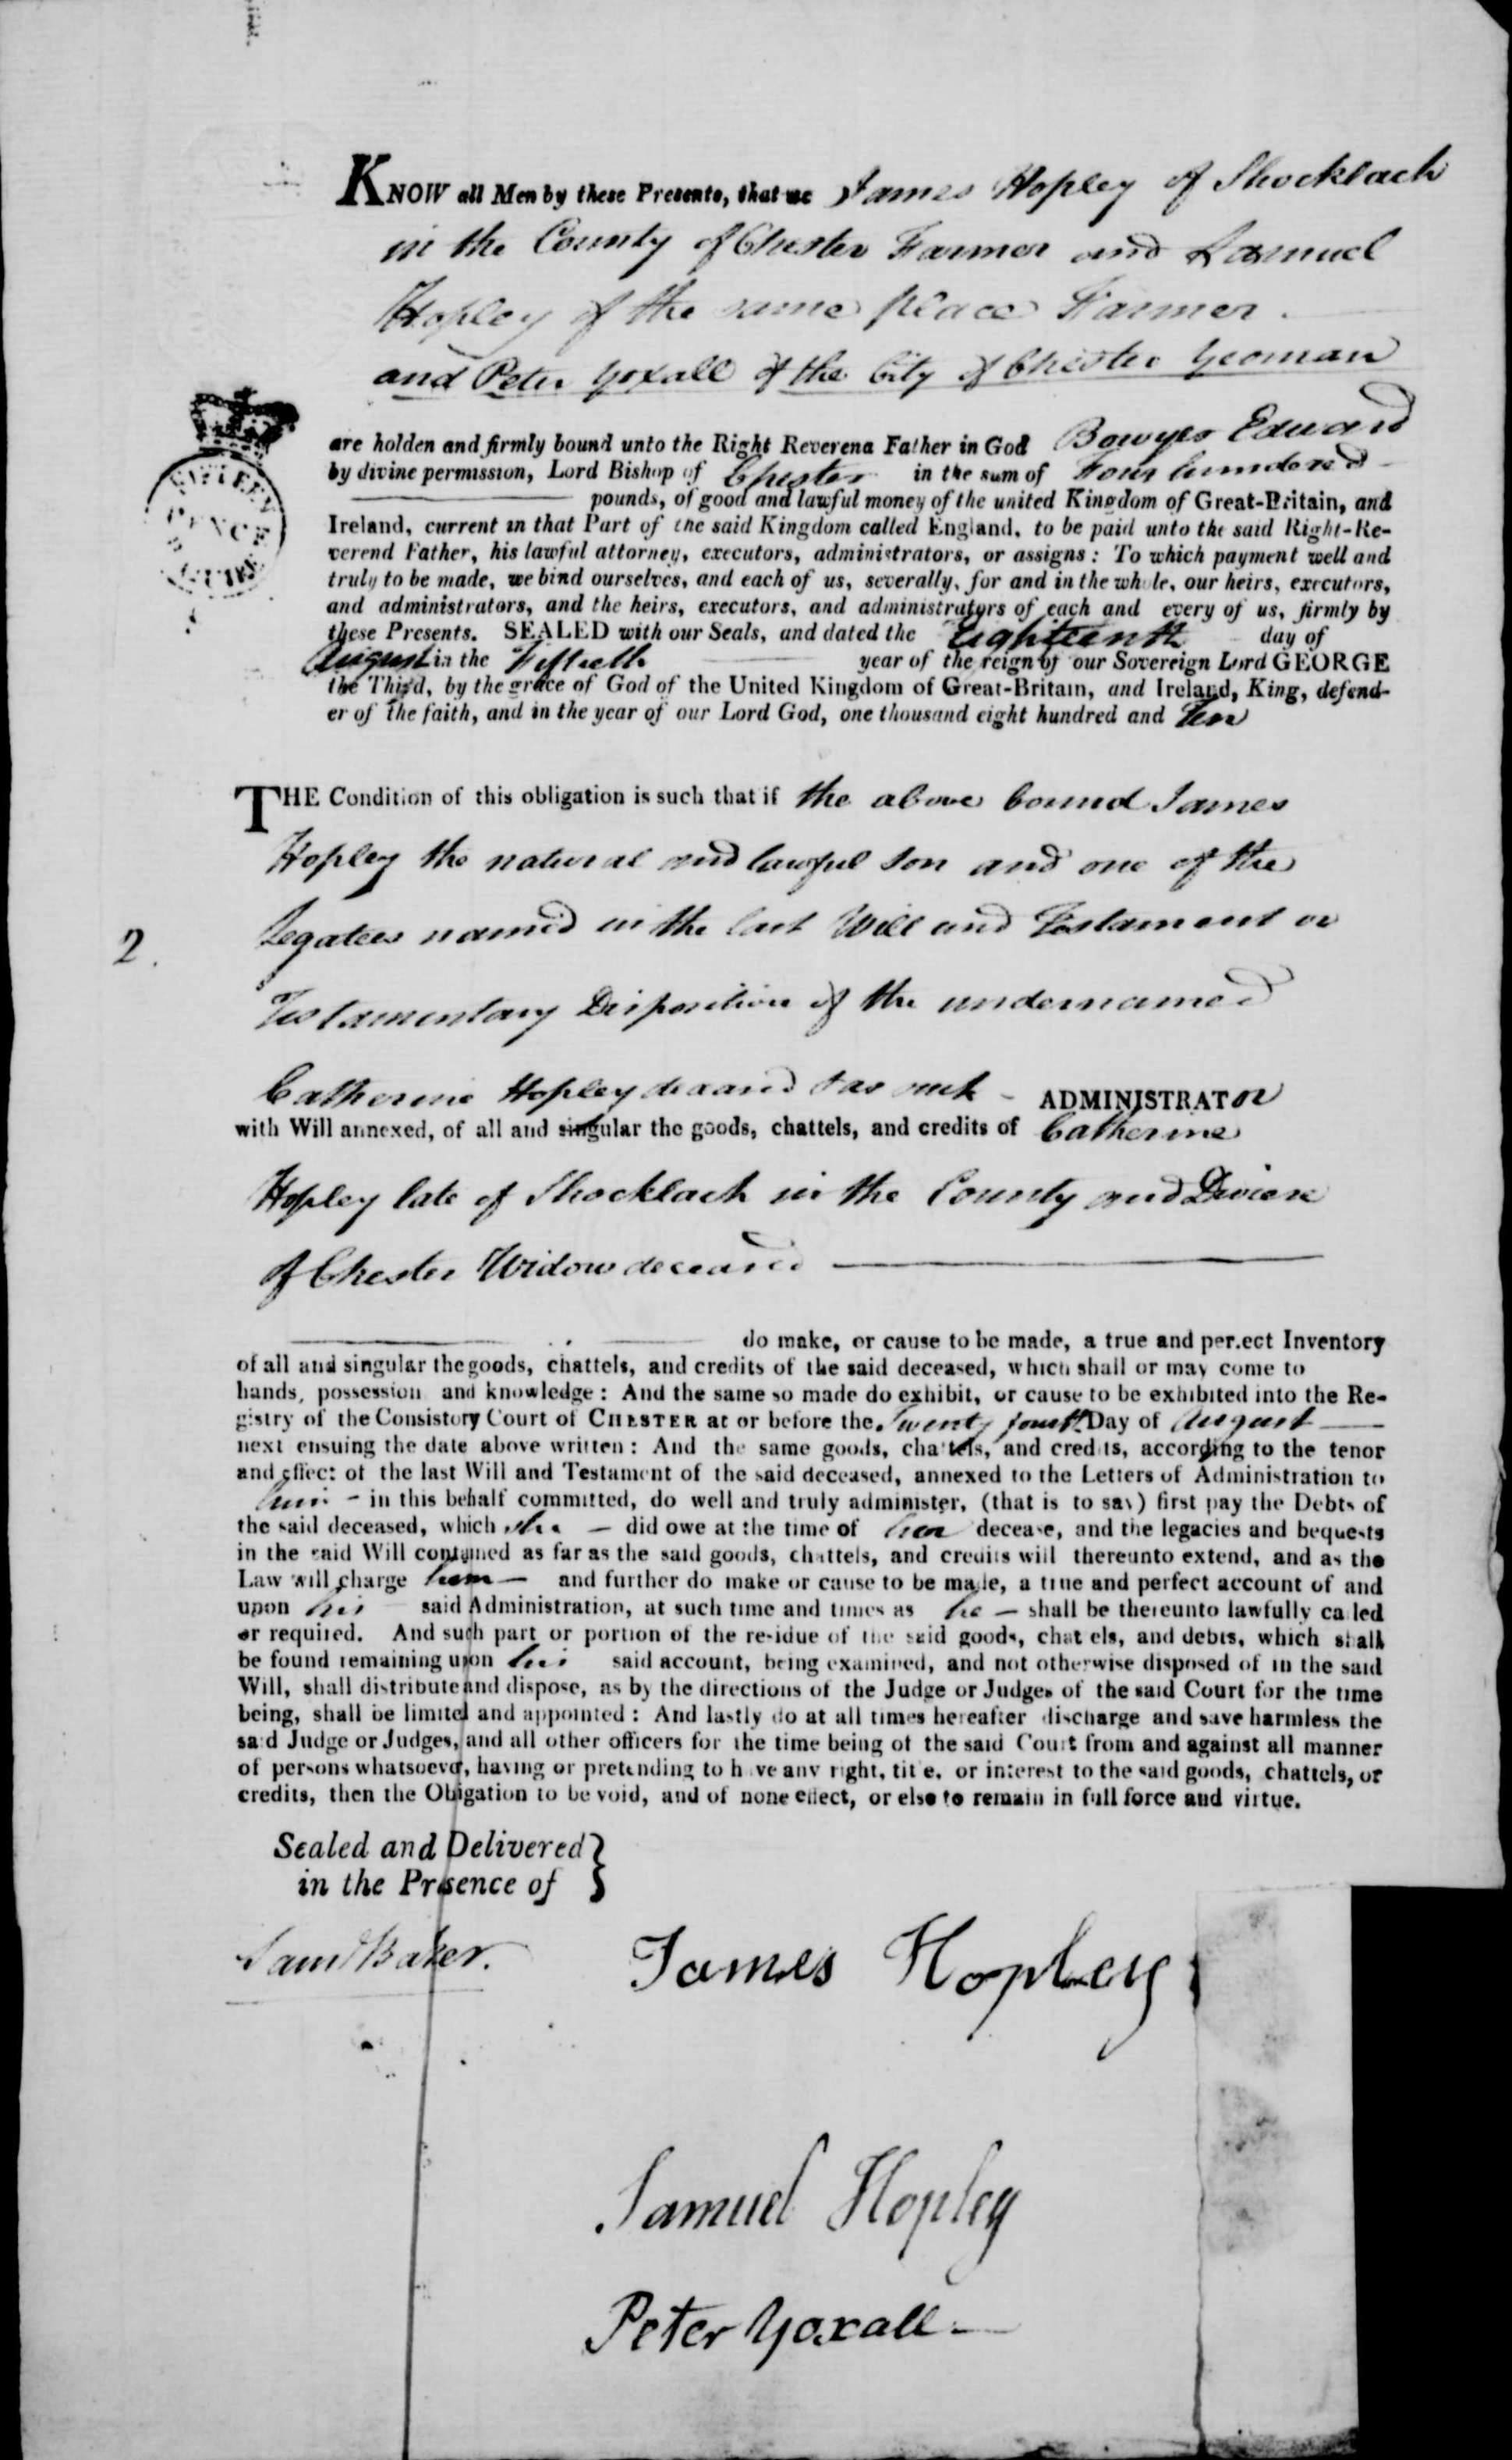 KNOW all Men by these Presents, that we James Hopley of Shocklach
in the County of Chester Farmer and Samuel
Hopley of the same place Farmer
and Peter Yoxall of the City of Chester Yeoman
are holden and firmly bound unto the Right Reverend Father in God Bowyer Edward
by divine permission, Lord Bishop of Chester in the sum of Four hundred
pounds, of good and lawful money of the united Kingdom of Great-Britain, and
Ireland, current in that Part of the said Kingdom called England, to be paid unto the said Right-Re-
verend Father, his lawful attorney, executors, administrators, or assigns: To which payment well and
truly to be made, we bind ourselves, and each of us, severally, for and in the whole, our heirs, executors,
and administrators, and the heirs, executors, and administrators of each and every of us, firmly by
these Presents. SEALED with our Seals, and dated the Eighteenth day of
August in the Fiftieth year of the reign of our Sovereign Lord GEORGE
the Third, by the grace of God of the United Kingdom of Great-Britain, and Ireland, King, defend-
er of the faith, and in the year of our Lord God, one thousand eight hundred and Ten
FIFTEEN
PENCE
THE Condition of this obligation is such that if the above bound James
Hopley the natural and lawful son and one of the
2. Legatees named in the last Will and Testament or
Testamentary Disposition of the undernamed
Catherine Hopley deceased & as such - ADMINISTRATor
with Will annexed, of all and singular the goods, chattels, and credits of Catherine
Hopley late of Shocklach in the County and Diocese
of Chester Widow deceased
do make, or cause to be made, a true and perfect Inventory
of all and singular the goods, chattels, and credits of the said deceased, which shall or may come to
hands, possession and knowledge: And the same so made do exhibit, or cause to be exhibited into the Re-
gistry of the Consistory Court of CHESTER at or before the Twenty fourth Day of August
next ensuing the date above written: And the same goods, chattels, and credits, according to the tenor
and effect of the last Will and Testament of the said deceased, annexed to the Letters of Administration to
him - in this behalf committed, do well and truly administer, (that is to say) first pay the Debts of
the said deceased, which she - did owe at the time of her decease, and the legacies and bequests
in the said Will contained as far as the said goods, chattels, and credits will thereunto extend, and as the
Law will charge him - and further do make or cause to be made, a true and perfect account of and
upon his said Administration, at such time and times as he - shall be thereunto lawfully called
or required. And such part or portion of the residue of the said goods, chattels, and debts, which shall
be found remaining upon his said account, being examined, and not otherwise disposed of in the said
Will, shall distribute and dispose, as by the directions of the Judge or Judges of the said Court for the time
being, shall be limited and appointed: And lastly do at all times hereafter discharge and save harmless the
said Judge or Judges, and all other officers for the time being of the said Court from and against all manner
of persons whatsoever, having or pretending to have any right, title, or interest to the said goods, chattels, or
credits, then the Obligation to be void, and of none effect, or else to remain in full force and virtue.
Sealed and Delivered
in the Presence of
Saml Baker.
James Hopley
Samuel Hopley
Peter Yoxall